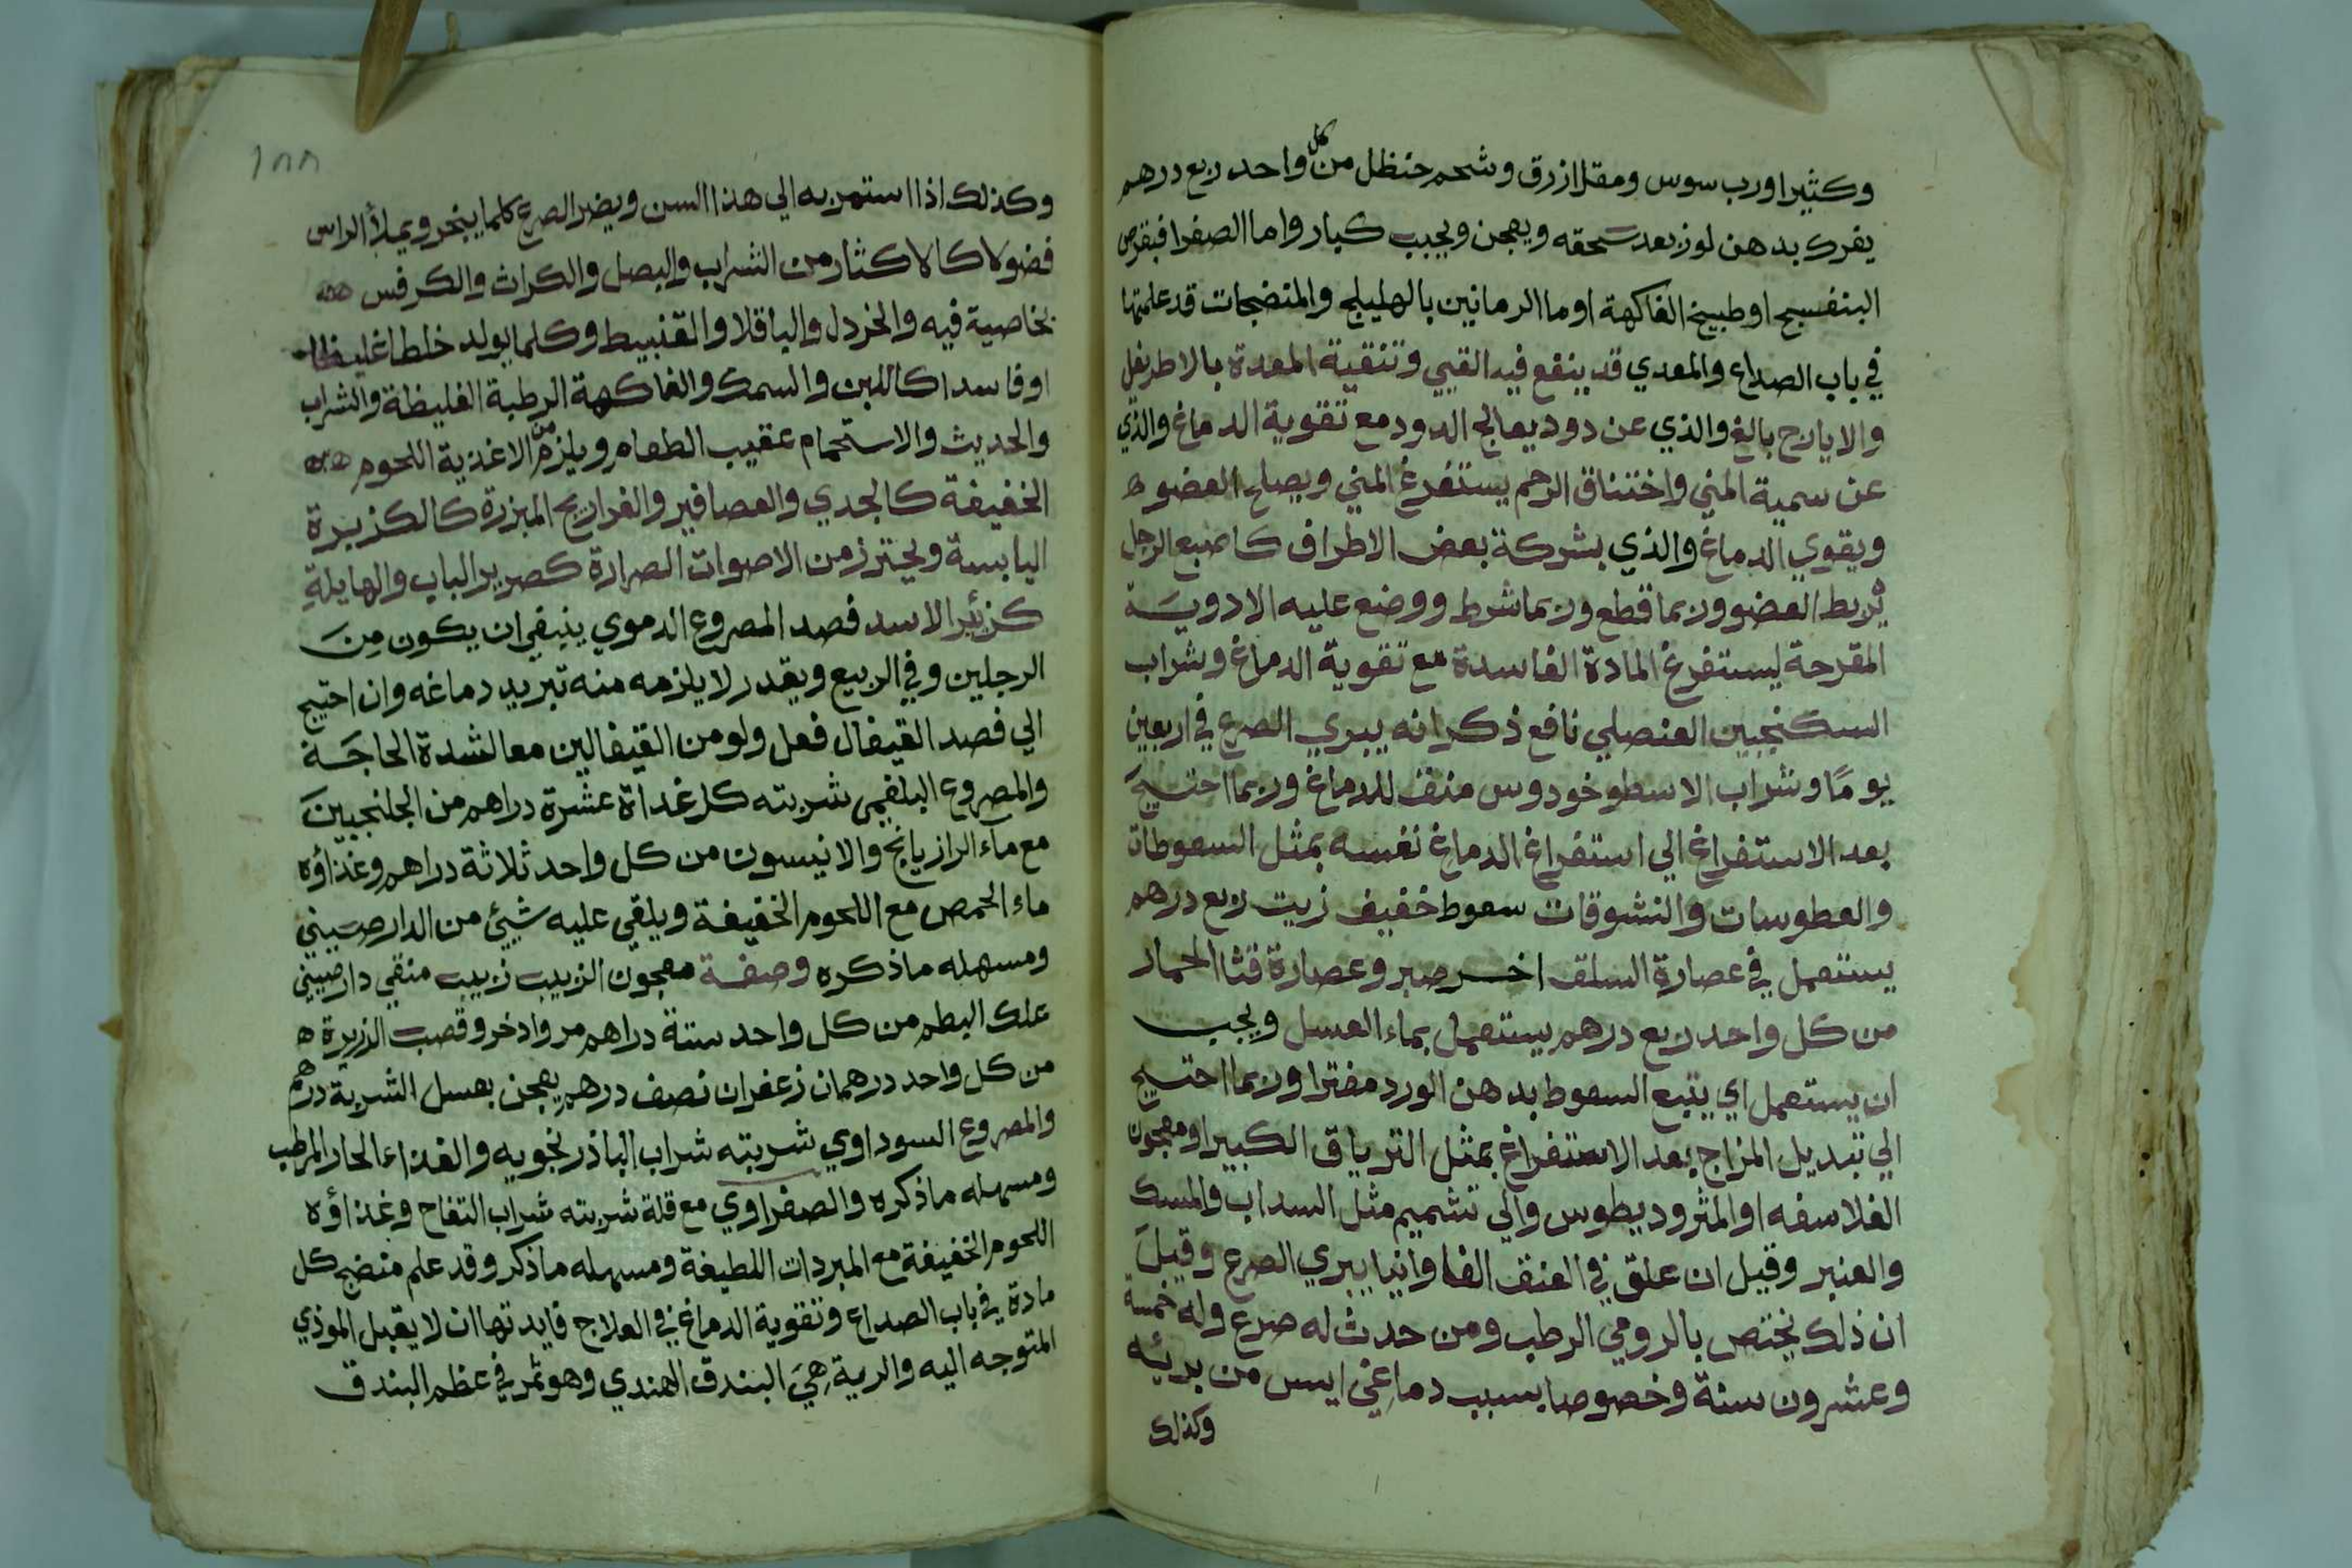 وكثيرا ورب سوس ومقل ازرق وشحم حنظل من كل واحد ربع درهم
يفرك بدهن لوز بعد سحقه ويعجن ويحبب كبار واما الصفرا فبقرص
البنفسج او طبيخ الفاكهة او ما الرمانين بالهليلج والمنضجات قد علمتها
في باب الصداع والمعدي قد ينفع فيه القيي وتنقية المعدة بالاطريفل
والايارج بالغ والذي عن دود يعالج الدود مع تقوية الدماغ والذي
عن سمية المني واختناق الرحم يستفرغ المني ويصلح العضو
ويقوي الدماغ والذي بشركة بعض الاطراف كاصبع الرجل
يربط العضو وربما قطع وربما شرط ووضع عليه الادوية
المقرحة ليستفرغ المادة الفاسدة مع تقوية الدماغ وشراب
السكنجبين العنصلي نافع ذكر انه يبري الصرع في اربعين
يومًا وشراب الاسطوخودوس منق للدماغ وربما احتيج
بعد الاستفراغ الي استفراغ الدماغ نفسه بمثل السعوطات
والعطوسات والنشوقات سعوط خفيف زيت ربع درهم
يستعمل في عصارة السلق اخر صبر وعصارة قثا الحمار
من كل واحد ربع درهم يستعمل بماء العسل ويجب
ان يستعمل اي يتبع السعوط بدهن الورد مفترا وربما احتيج
الي تبديل المزاج بعد الاستفراغ بمثل الترياق الكبير او معجون
الفلاسفه او المثروديطوس والي تشميم مثل السداب والمسك
والعنبر وقيل ان علق في العنق الفاوانيا يبري الصرع وقيل
ان ذلك يختص بالرومي الرطب ومن حدث له صرع وله خمسة
وعشرون سنة وخصوصا بسبب دماغي ايس من بريه
وكذلك
١٨٨
وكذلك اذا استمر به الي هذا السن ويضر الصرع كلما يبخر ويملأ الراس
فضولا كالاكثار من الشراب والبصل والكراث والكرفس
بخاصية فيه والخردل والباقلا والقنبيط وكلما يولد خلطا غليظا
او فاسدا كاللبن والسمك والفاكهة الرطبة الغليظة والشراب
والحديث والاستحمام عقيب الطعام ويلزم من الاغذية اللحوم
الخفيفة كالجدي والعصافير والفراريج المبزرة كالكزبرة
اليابسة ويحترز من الاصوات الصرارة كصرير الباب والهايلة
كزئير الاسد فصد المصروع الدموي ينبغي ان يكون من
الرجلين وفي الربيع ويقدر لا يلزمه منه تبريد دماغه وان احتيج
الي فصد القيفال فعل ولو من القيفالين معا لشدة الحاجة
والمصروع البلغمي شربته كل غداة عشرة دراهم من الجلنجبين
مع ماء الرازيانج والانيسون من كل واحد ثلاثة دراهم وغذاؤه
ماء الحمص مع اللحوم الخفيفة ويلقي عليه شيئ من الدارصيني
ومسهله ما ذكره وصفة معجون الزبيب زبيب منقي دارصيني
علك البطم من كل واحد ستة دراهم مر واذخر وقصب الذريرة
من كل واحد درهمان زعفران نصف درهم يعجن بعسل الشربة درهم
والمصروع السوداوي شربته شراب الباذرنجويه والغذاء الحار المرطب
ومسهله ما ذكره والصفراوي مع قلة شربته شراب التفاح وغذاؤه
اللحوم الخفيفة مع المبردات اللطيفة ومسهله ما ذكر وقد علم منضج كل
مادة في باب الصداع وتقوية الدماغ في العلاج فايدتها ان لا يقبل الموذي
المتوجه اليه والرية هي البندق الهندي وهو ثمر في عظم البندق